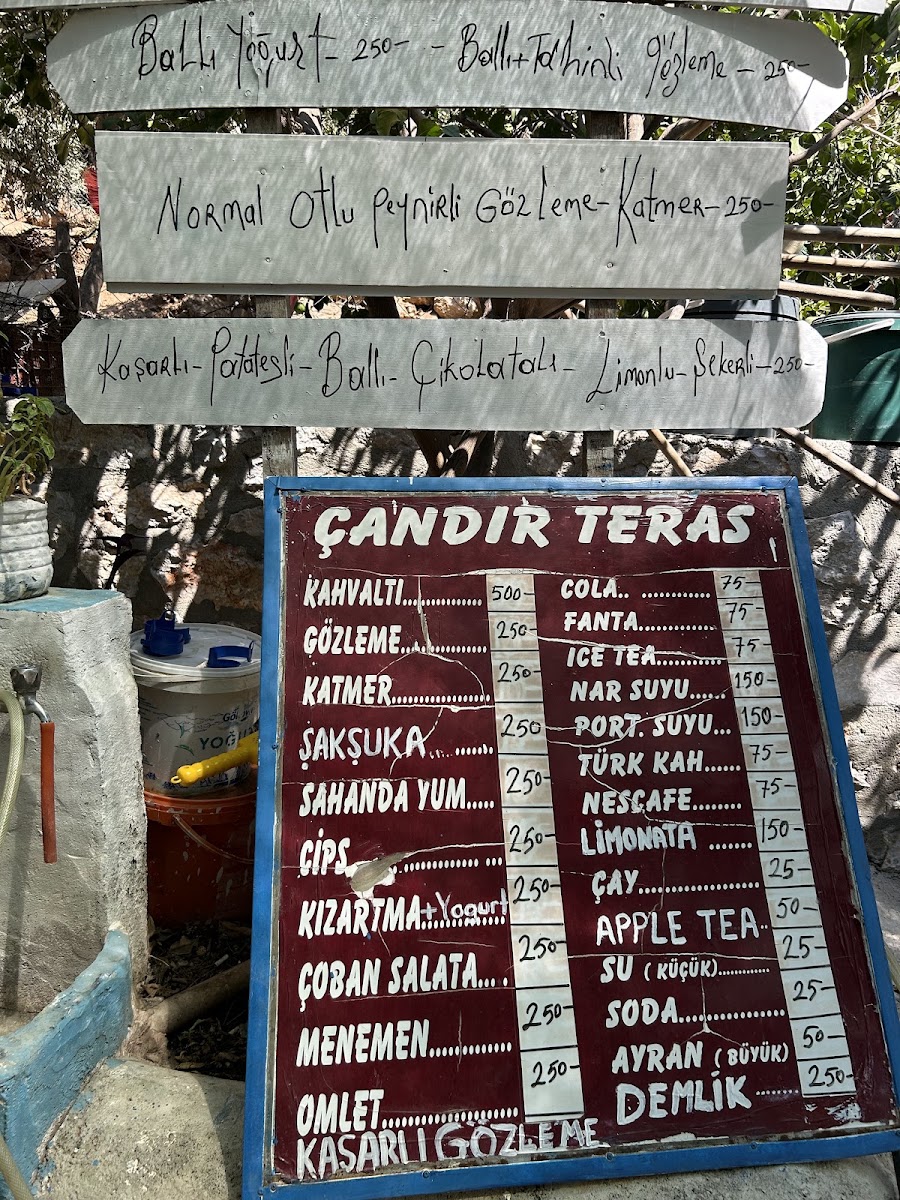 Ballı Yoğurt - 250- - Ballı+Tahinli gözleme - 250-
Normal Otlu Peynirli Gözleme-Katmer-250-
Kaşarlı-Patatesli-Ballı-Çikolatalı-Limonlu-Şekerli-250-
ÇANDIR TERAS
KAHVALTI.............. 500-
GÖZLEME.............. 250-
KATMER.............. 250-
ŞAKŞUKA.......... 250
SAHANDA YUM..... 250-
CİPS.............. 250-
KIZARTMA+Yogurt.......... 250-
ÇOBAN SALATA.... 250-
MENEMEN............ 250-
OMLET................ 250-
KAŞARLI GÖZLEME
COLA.. .......... 75-
FANTA............ 75-
ICE TEA.......... 75-
NAR SUYU..... 150-
PORT. SUYU... 150-
TÜRK KAH...... 75-
NESCAFE........ 75-
LİMONATA ...... 150-
ÇAY................ 25-
APPLE TEA.. 50-
SU (KÜÇÜK)........... 25-
SODA............... 25-
AYRAN (BÜYÜK) 50-
DEMLİK ...... 250-
YOĞU